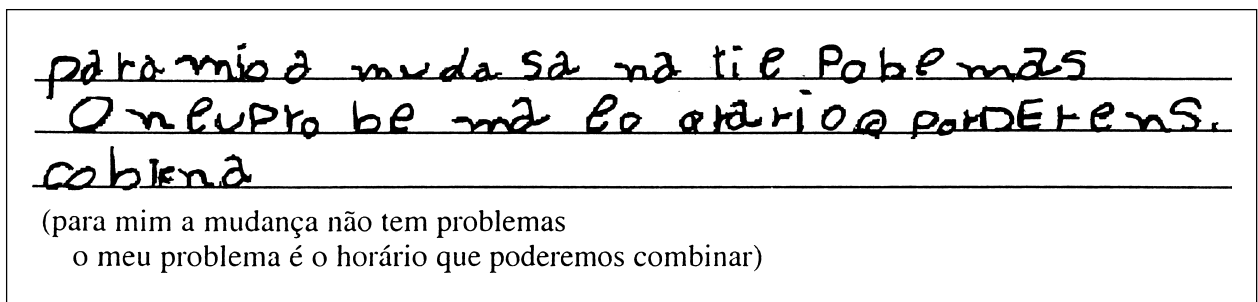 para mio a muda sa na tie Pobemas
O neuprobe ma eo orário q porDErens.
cobiena
(para mim a mudança não tem problemas
o meu problema é o horário que poderemos combinar)